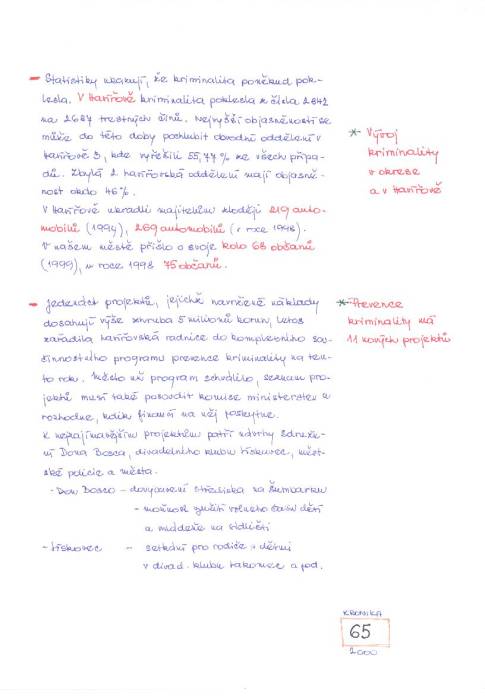 - Statistiky ukazují, že kriminalita poněkud pok-
lesla. V Havířově kriminalita poklesla z čísla 2842
na 2687 trestných činů. Nejvyšší objasněností se
může do této doby pochlubit obvodní oddělení v
Havířově 3, kde vyřešili 55,77% ze všech přípa-
dů. Zbylá 2 havířovská oddělení mají objasně-
nost okolo 46%.
V Havířově ukradli majitelům zloději 219 auto-
mobilů (1999), 269 automobilů (v roce 1998).
V našem městě přišlo o svoje kolo 68 občanů
(1999), v roce 1998 75 občanů.
* Vývoj
kriminality
v okrese
a v Havířově
- Jedenáct projektů, jejichž navržené náklady
dosahují výše zhruba 5 milionů korun, letos
zařadila havířovská radnice do komplexního sou-
činnostního programu prevence kriminality na ten-
to rok. Město už program schválilo, seznam pro-
jektů musí také posoudit komise ministerstev a
rozhodne, kolik financí na něj poskytne.
K nejzajímavějším projektům patří návrhy Sdruže-
ní Dona Bosca, divadelního klubu Vískovec, měst-
ské policie a města.
- Don Bosco - dovybavení střediska na Šumbarku
- možnost využití volného času dětí
a mládeže na sídlišti
- Vískovec - setkání pro rodiče s dětmi
v divad. klubu takomec a pod.
* Prevence
kriminality má
11 nových projektů
KRONIKA
65
2000